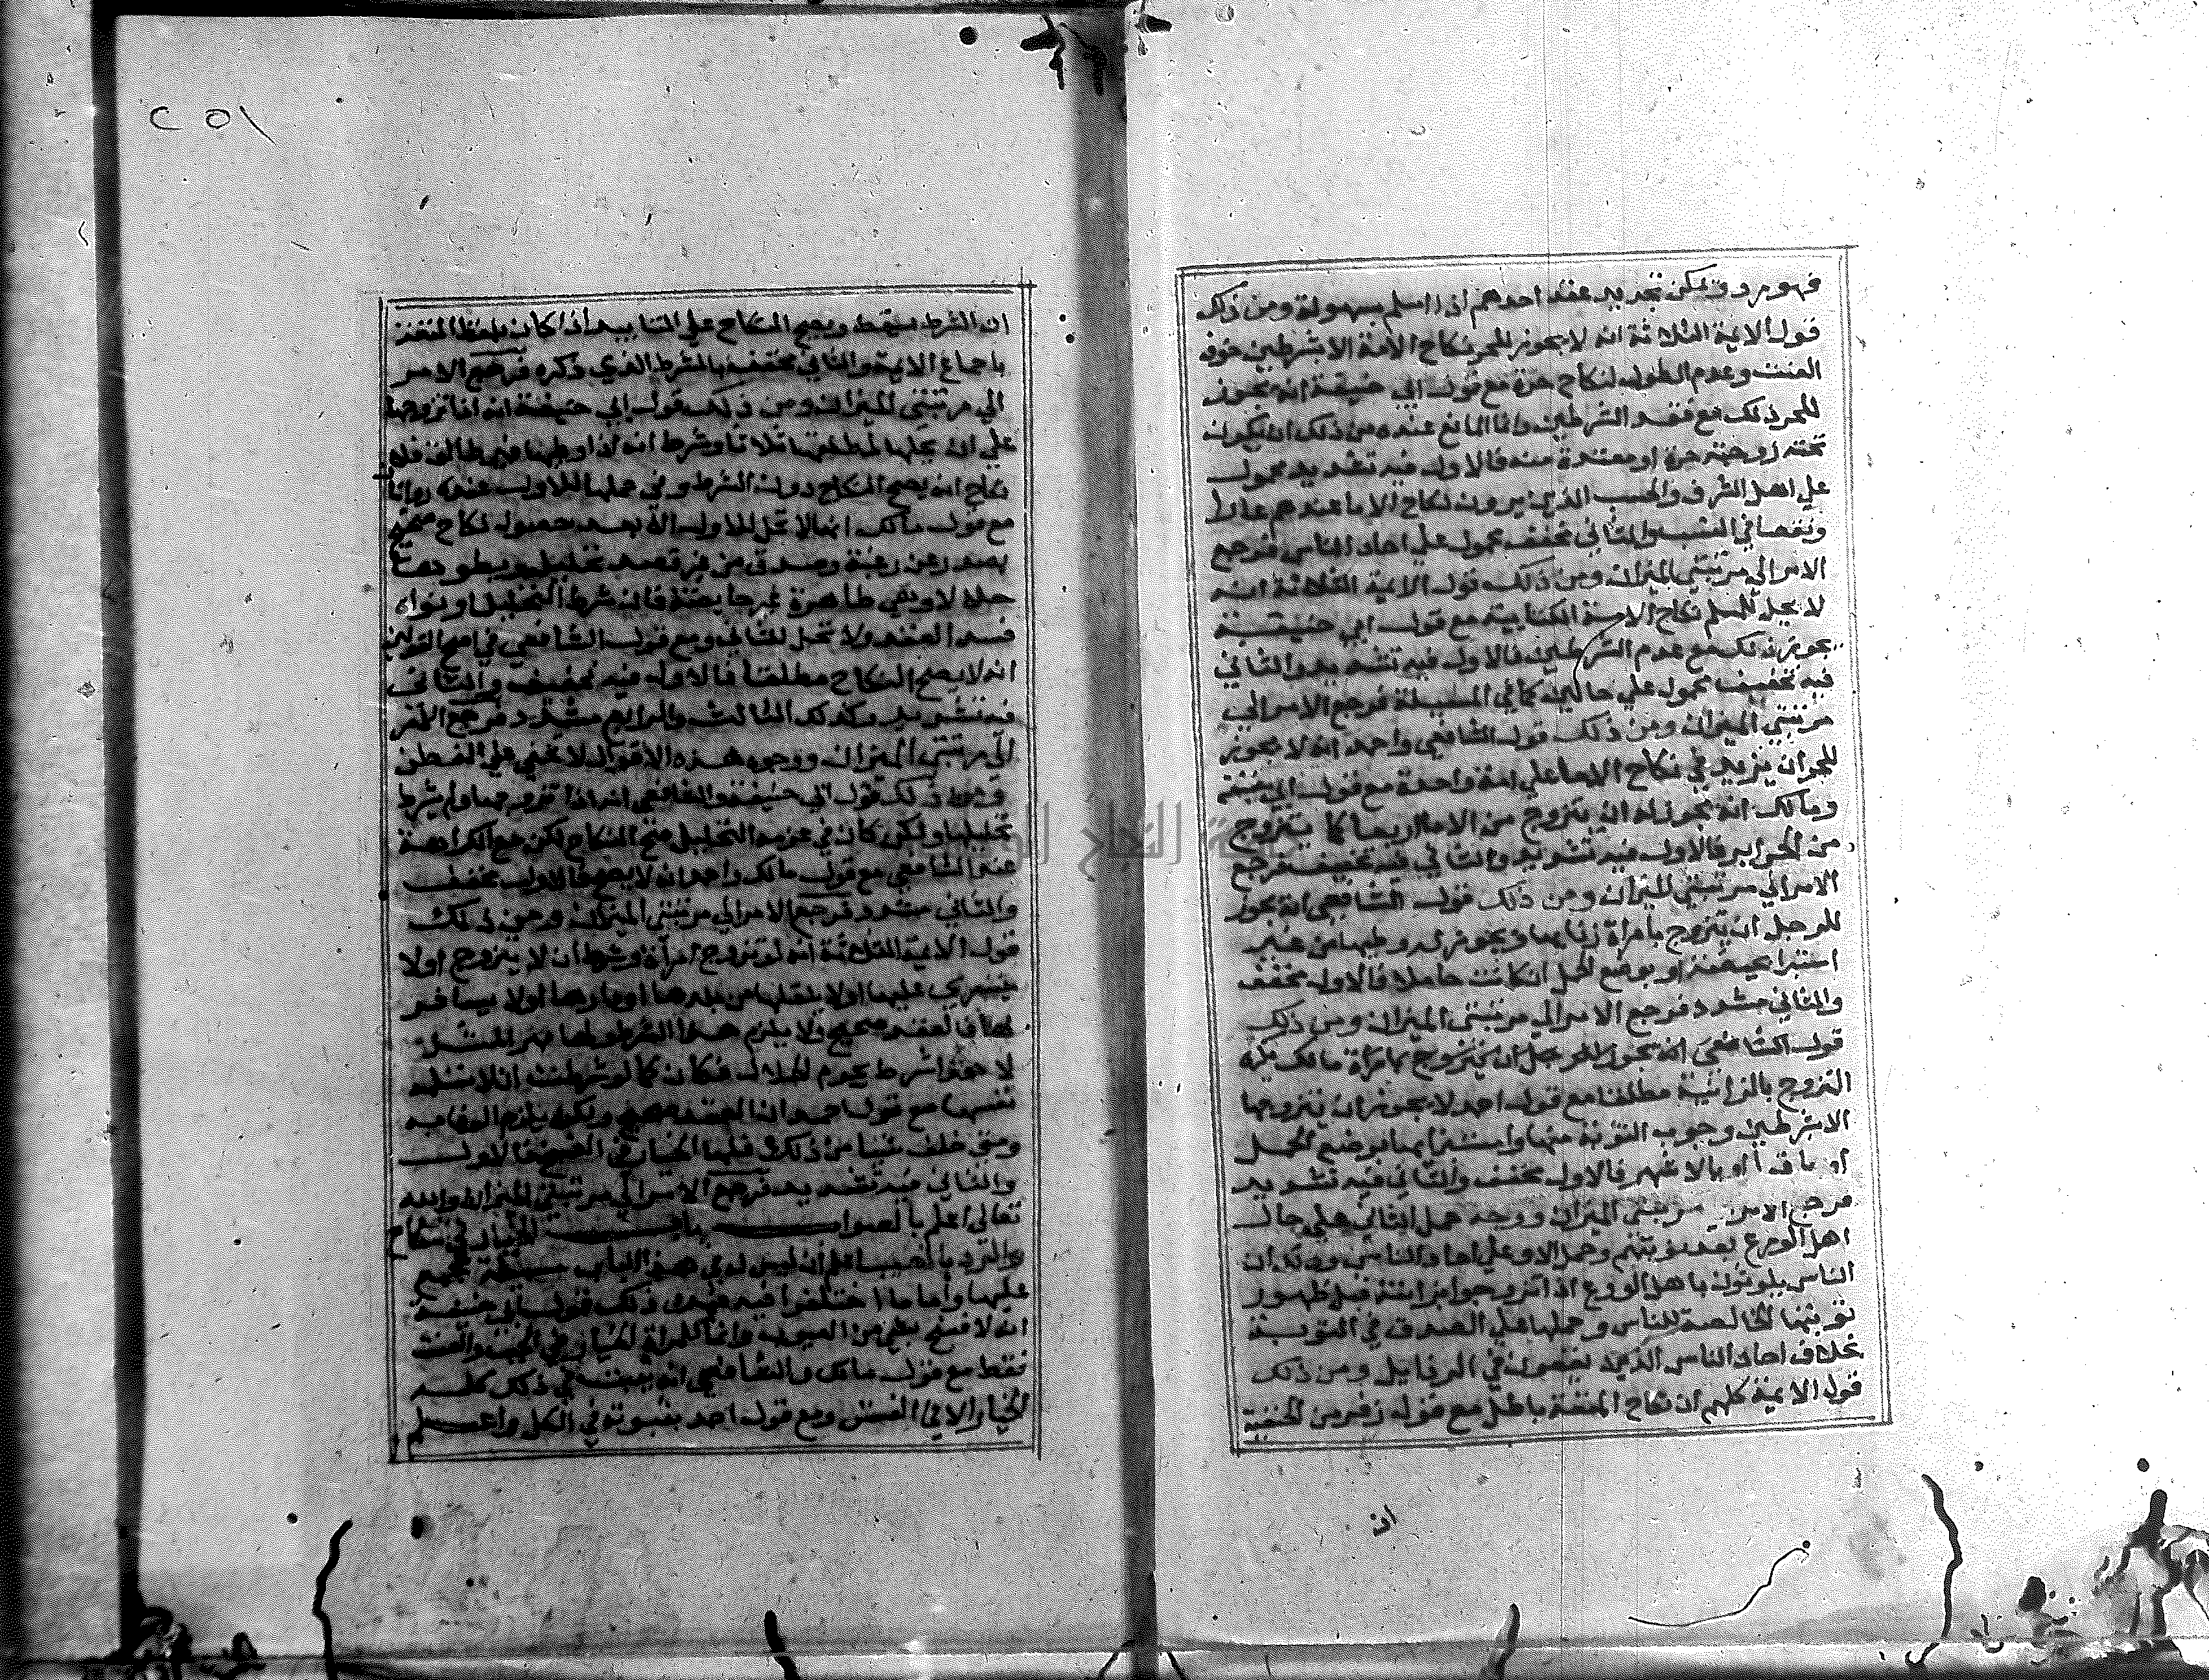 فهو مردود ويمكن تجديد عقد احدهم اذا اسلم بسهولة ومن ذلك
قول الايمة الثلاثة انه لا يجوز للحر نكاح الامة الا بشرطين خوف
العنت وعدم الطول لنكاح حرة مع قول ابي حنيفة انه يجوز
للحر ذلك مع فقد الشرطين وانما المانع عنده من ذلك ان يكون
تحته زوجة حرة او معتدة منه فالاول فيه تشديد محمول
علي اهل الشرف والحسب الذين يرون نكاح الاما عندهم عارا
ونقصا في النسب والثاني مخفف محمول علي احاد الناس فرجع
الامر الي مرتبتي الميزان ومن ذلك قول الايمة الثلاثة انه
لا يحل للمسلم نكاح الامة الكتابية مع قول ابي حنيفة
يجوز ذلك مع عدم الشرطين فالاول فيه تشديد والثاني
فيه تخفيف محمول علي حالين كما في المسيلة فرجع الامر الي
مرتبتي الميزان ومن ذلك قول الشافعي واحمد انه لا يجوز
للحر ان يزيد في نكاح الاما علي امة واحدة مع قول ابي حنيفة
ومالك انه يجوز له ان يتزوج من الاما اربعا كما يتزوج
من الحراير فالاول فيه تشديد والثاني فيه تخفيف فرجع
الامر الي مرتبتي الميزان ومن ذلك قول الشافعي انه يجوز
للرجل ان يتزوج بامراة زنا بها ويجوز له وطيها من غير
استبرا بحيضة او بوضع الحمل ان كانت حاملا فالاول مخفف
والثاني مشدد فرجع الامر الي مرتبتي الميزان ومن ذلك
قول الشافعي انه يجوز للرجل ان يتزوج بامراة
التزوج بالزانية مطلقا مع قول احمد لا يجوز ان يتزوجها
الا بشرطين وجوب التوبة منها واستبرايها بوضع الحمل
او بالاقرا او بالاشهر فالاول مخفف والثاني فيه تشديد
فرجع الامر مرتبتي الميزان ووجه حمل الثاني علي حال
اهل الورع بعد توبتهم وحمل الاول علي احاد الناس وذلك ان
الناس يلوثون باهل الورع اذا تزوجوا بزانية قبل ظهور
توبتها الخالصة للناس وحملها علي الصدق في التوبة
بخلاف احاد الناس الذين يقعون في الرذايل ومن ذلك
قول الايمة كلهم ان نكاح المتعة باطل مع قول زفر من الحنفية
ان
٢٥١
ان الشرط يسقط ويصح النكاح علي التابيد اذا كان بلفظ
باجماع الايمة والثاني مخفف بالشرط الذي ذكره فرجع الامر
الي مرتبتي الميزان ومن ذلك قول ابي حنيفة انه اذا تزوجها
علي ان يحلها لمطلقها ثلاثا وشرط انه اذا وطيها فهي طالق فلا
نكاح انه يصح النكاح دون الشرط وفي حلها للاول عنده روايتان
مع قول مالك انها لا تحل للاول الا بعد حصول نكاح صحيح
يصدر عن رغبة من غير قصد تحليل ويطوها
حلالا وهي طاهرة غير حايضة فان شرط التحليل او نواه
فسد العقد ولا تحل للثاني ومع قول الشافعي في اصح القولين
انه لا يصح النكاح مطلقا فالاول فيه تخفيف والثاني
فيه تشديد وكذلك الثالث والرابع مشدد فرجع الامر
الي مرتبتي الميزان ووجوه هذه الاقوال لا تخفي علي الفطن
ومن ذلك قول ابي حنيفة والشافعي انه اذا تزوجها ولم يشرط
تحليلها ولكن كان في عزمه التحليل صح النكاح لكن مع الكراهة
عند الشافعي مع قول مالك واحمد انه لا يصح فالاول مخفف
والثاني مشدد فرجع الامر الي مرتبتي الميزان ومن ذلك
قول الايمة الثلاثة انه لو تزوج امراة وشرط ان لا يتزوج اولا
يتسري عليها اولا ينقلها من بلدها او دارها اولا يسافر
بها فالعقد صحيح ولا يلزم هذا الشرط ولها مهر المثل
شرط يحرم الحلال فكان كما لو شرطت ان لا تسلم
نفسها مع قول احمد ان العقد صحيح ولكن يلزم الوفا به
ومتي خالف شيا من ذلك فلها الخيار في الفسخ فالاول
والثاني فيه تشديد فرجع الامر الي مرتبتي الميزان والله
تعالي اعلم بالصواب باب الخيار في نكاح
والرد بالعيب اعلم ان ليس لي في هذا الباب مسئلة
عليها واما ما اختلفوا فيه فمن ذلك قول ابي حنيفة
انه لا فسخ بشي من العيوب وانما للمراة الخيار في الجب والعنة
فقط مع قول مالك والشافعي انه يثبت في ذلك كله
الخيار الا في الفتق ومع قول احمد بثبوته في الكل واعلم